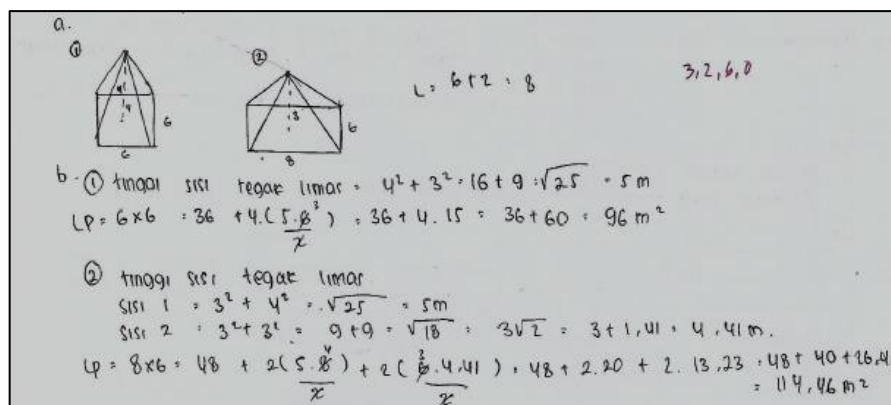 a.
① ②
L = 6 + 2 = 8
3,2,6,0
4
4
6
6
3
6
8
b. ① tinggi sisi tegak limas = 4² + 3² = 16 + 9 = √25 = 5 m
LP = 6 x 6 = 36 + 4.(5.6 3/2) = 36 + 4.15 = 36 + 60 = 96 m²
② tinggi sisi tegak limas
sisi 1 = 3² + 4² = √25 = 5m
sisi 2 = 3² + 3² = 9 + 9 = √18 = 3√2 = 3 + 1,41 = 4,41 m.
LP = 8x6 = 48 + 2(5.8 4/2) + 2(6 3.4,41/2) = 48 + 2.20 + 2.13,23 = 48 + 40 + 26,4
= 114,46 m²